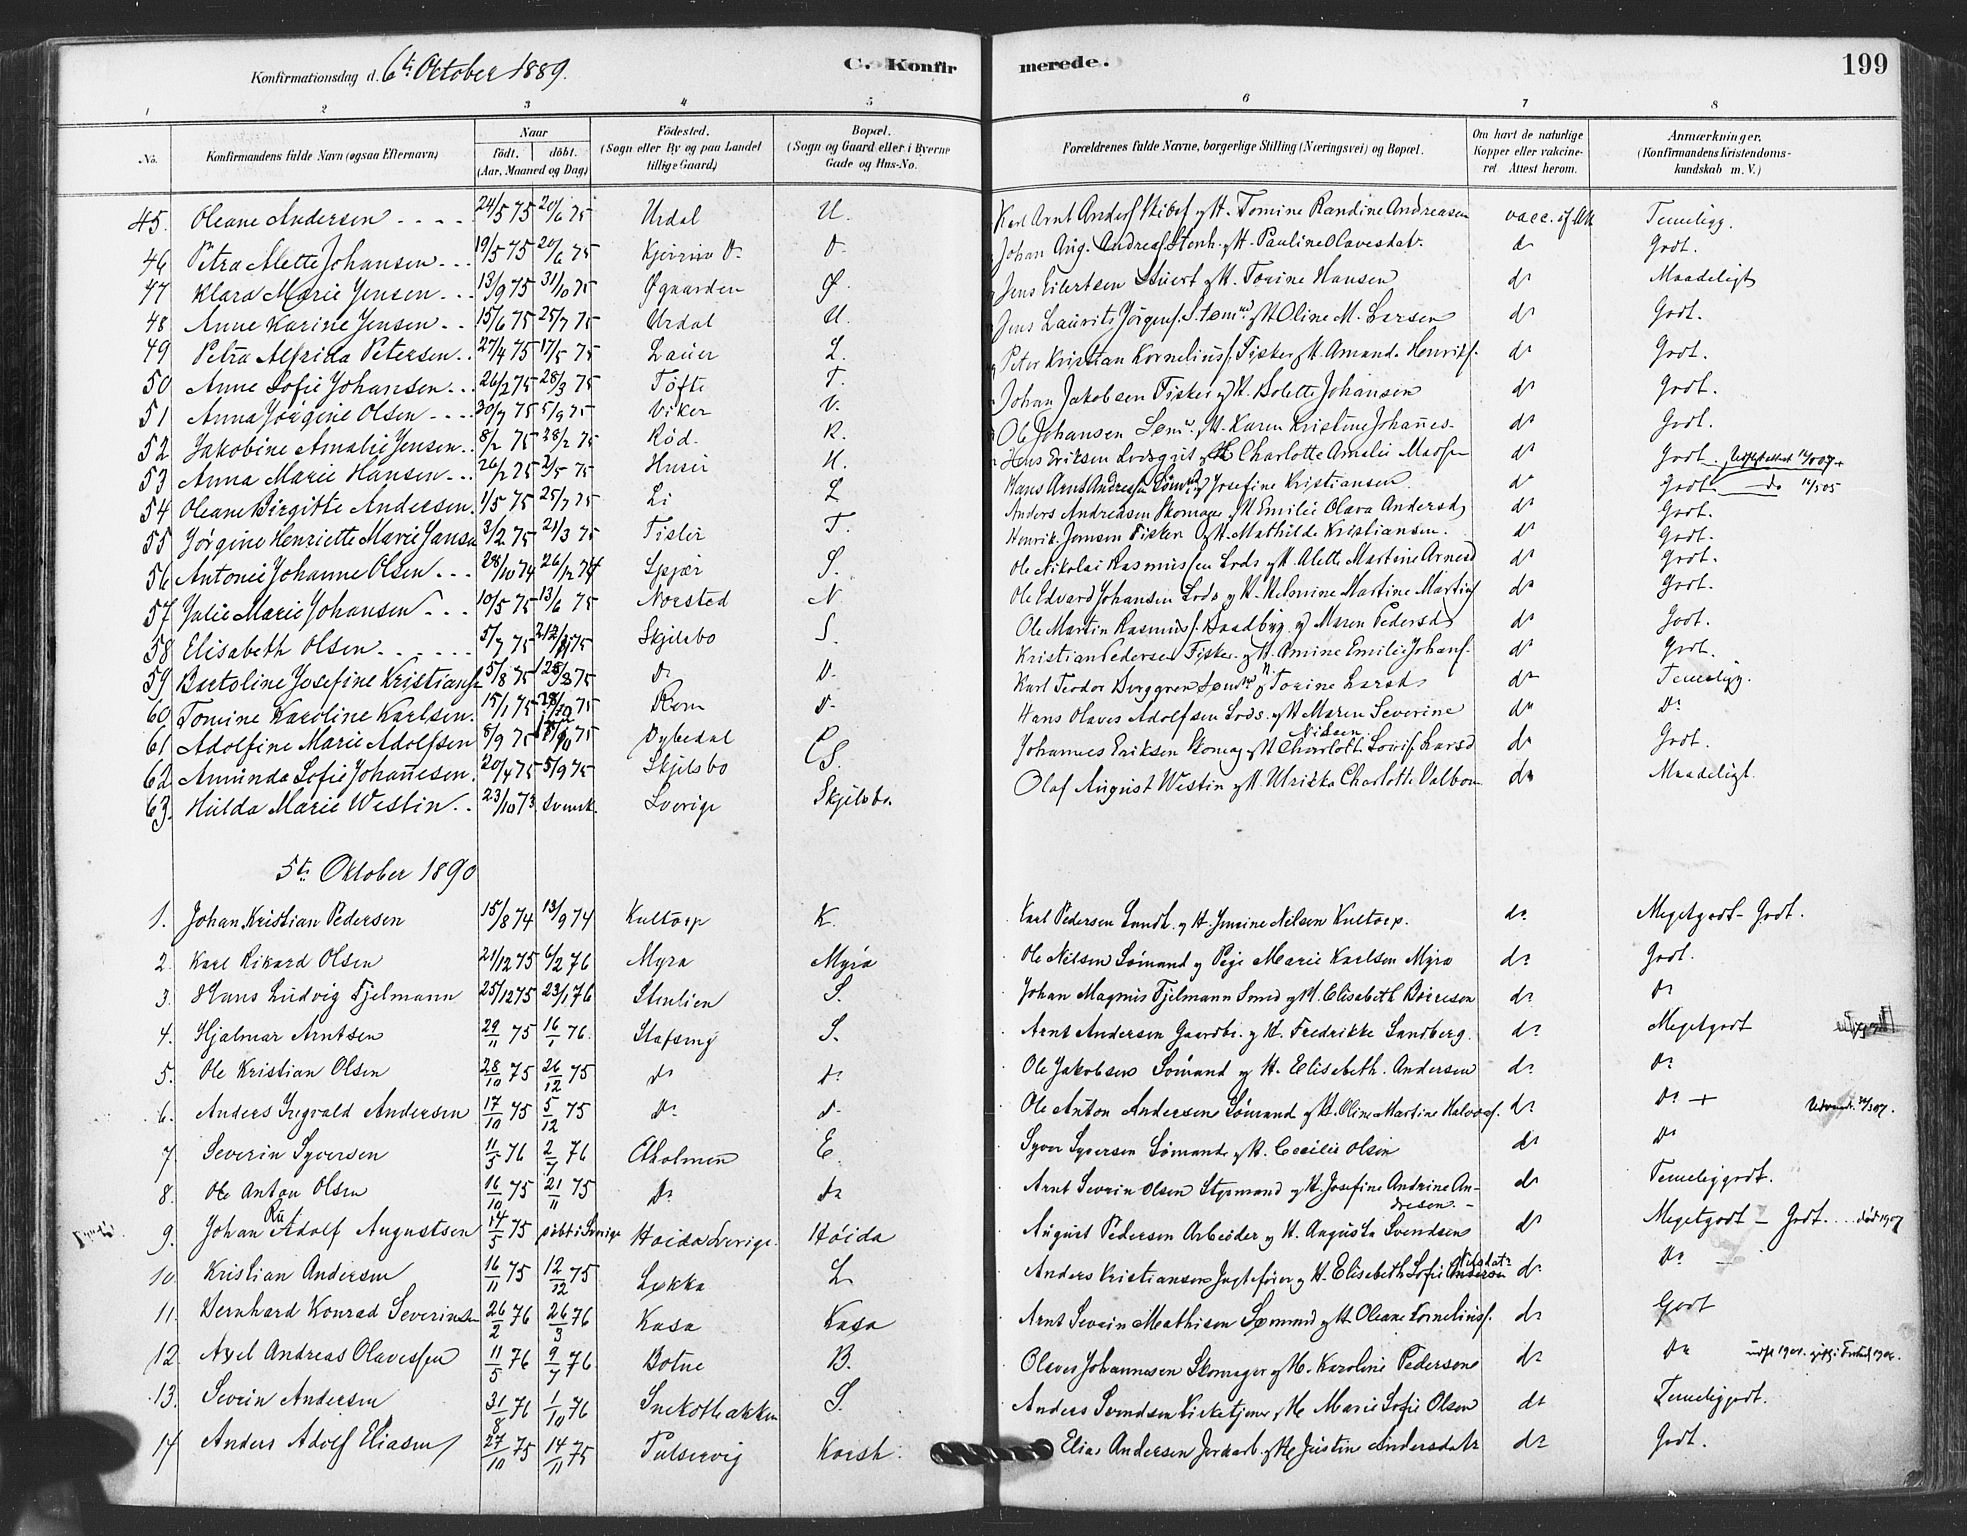 Konfirmationsdag d. 6te Oktober 1889.
C. Konfirmerede.
199
1 2 3 4 5 6 7 8
No.
Konfirmandens fulde Navn (ogsaa Efternavn)
Naar
født. døbt.
(Aar, Maaned og Dag)
Fødested.
(Sogn eller By og paa Landet
tillige Gaard)
Bopæl.
(Sogn og Gaard eller i Byerne
Gade og Hus-No.
Forældrenes fulde Navne, borgerlige Stilling (Næringsvei) og Bopæl.
Om havt de naturlige
Kopper eller vakcine-
ret. Attest herom.
Anmærkninger,
(Konfirmandens Kristendoms-
kundskab m. V.)
45. Oleane Andersen 24/5 75 20/6 75 Urdal U. Karl Arnt Anders. y H. Tomine Randine Andreasen vacc. if Att Temeligg.
46 Petra Alette Johansen 19/5 75 20/6 75 D. Johan Aug. Andreas. Stenh. y H. Pauline Olavesdatr. do Godt.
47 Klara Marie Jensen 13/9 75 31/10 75 Øgaarden Ø. Jens Eilertsen y H. Torine Hansen do Maadeligt
48 Anne Karine Jensen 15/6 75 25/7 75 Urdal U. Jens Laurits Jørgens. Sømd. y H. Oline M. Larsen do Godt.
49 Petra Alfrida Petersen 27/4 75 17/5 75 Lauer L. Peter Kristian Kornelius. Fisker y H. Amand. Henriks. do Godt.
50 Anne Sofie Johansen 26/2 75 28/3 75 Tofte T. Johan Jakobsen Fisker y H. Bolette Johansen do Godt.
51 Anna Jørgine Olsen 30/7 75 5/9 75 Viker V. Ole Johansen Sømd. y H. Karen Kristine Johannes- do Godt.
52 Jakobine Amalie Jensen 8/2 75 28/2 75 Rød. R. Jens Eriksen y H. Charlotte Amalie Mads- do Godt.
53 Anna Marie Hansen 26/2 75 2/5 75 Huser H. Hans Arnt Andressen Sømd y Josefine Kristiansen do Godt
54 Oleane Birgitte Andersen 1/5 75 25/7 75 Li L Anders Andreasen Skomager y H Emilie Olava Andersd do Godt.
55 Jørgine Henriette Marie Jansen 3/2 75 21/3 75 Tisler T. Henrik Jensen Fisker y H. Mathilde Kristiansen. do Godt.
56 Antonie Johanne Olsen 28/10 74 26/12 74 Spjær S. Ole Nikolai Rasmussen Lods y H. Alette Martine Arnesd do Godt.
57 Julie Marie Johansen 10/5 75 13/6 75 Norsted N. Ole Edvard Johansen Lods y H. Helmine Martine Martins do Godt.
58 Elisabeth Olsen 5/7 75 Skjelsbo S. Ole Martin Rasmus. Gaardbrg. y Maren Pedersd do Godt.
59 Bertoline Josefine Kristians. 5/8 75 Do D. Kristian Pedersen Fisker y H. Amine Emilie Johans. do Godt.
60 Tomine Karoline Karlsen 15/1 75 Rom D. Karl Teodor Berggren Sømd y H. Torine Larsd do Temeligg.
61 Adolfine Marie Adolfsen 8/9 75 Dybedal D. Hans Olaves Adolfsen Lods y H Maren Severine Nilsen do Do
62 Amunda Sofie Johannesen 20/4 75 5/9 75 Skjelsbo S. Johannes Eriksen Skomag y H Charlott. Lovis. Larsd do Godt.
63. Hulda Marie Westin 23/10 73 Svensk. Sverige Skjelsbo. Olaf August Westin y H. Ulrikka Charlotte Valbom do Maadeligt.
5te Oktober 1890
1. Johan Kristian Pedersen 15/8 74 13/9 74 Kultorp K. Karl Pedersen y H. Jensine Nilsen Kultorp. do Megetgodt - Godt.
2. Karl Rikard Olsen 21/12 75 6/2 76 Myra Myra Ole Nilsen Sømand y Pige Marie Karlsen Myra do Godt.
3. Hans Ludvig Fjelmann 25/12 75 23/1 76 Stenlien S. Johan Magnus Fjelmann Smed y H. Elisabeth Børresen do Do
4. Hjalmar Arntsen 29/11 75 16/1 76. Stafseng S. Arnt Andersen Gaardbr. y H. Fredrikke Sandberg. do Megetgodt
5. Ole Kristian Olsen 28/10 75 26/12 75 Do Do Ole Jakobsen Sømand y H. Elisabeth. Andersen do Do
6. Anders Ingvald Andersen 17/10 75 5/12 75 Do D. Ole Anton Andersen Sømand y H. Oline Martine Halvors. do Do + Udvandr. 1907.
7. Severin Syversen 11/5 76 2/7 76 Ekholmen E. Syver Syversen Sømand y H. Cecilie Olsen do Do
8. Ole Anton Olsen 16/10 75 21/11 75 Do Do Arnt Severin Olsen Styrmand y H. Josefine Andrine Andresen do Temeliggodt.
9. Johan Adolf Augustsen 14/5 75 døbt i Sverige Høida Sverige. Høida August Pedersen Arbeider y H. Augusta Svendsen do Megetgodt - Godt. død 1907
10. Kristian Andersen 16/11 75 12/12 75 Løkka L Anders Kristiansen Jagtefører y H. Elisabeth Sofie Nilsdatr do Do
11. Bernhard Konrad Severinsen 26/2 76 26/3 76 Kasa Kasa Arnt Severin Mathisen Sømand y H. Oleane Kornelius. do Godt
12. Axel Andreas Olavessen 11/5 76 9/7 76 Botne B. Olaves Johannesen Skomager y H. Karoline Pedersen do Do
13. Severin Andersen 31/8 76 1/10 76 Snekotbakken S. Anders Svendsen Kirketjener y H. Marie Sofie Olsen do Temeliggodt.
14 Anders Adolf Eliasen 27/10 75 14/11 75 Pulservig Korsh. Elias Andersen Jordarb. y H. Justine Andersdatr do Godt.